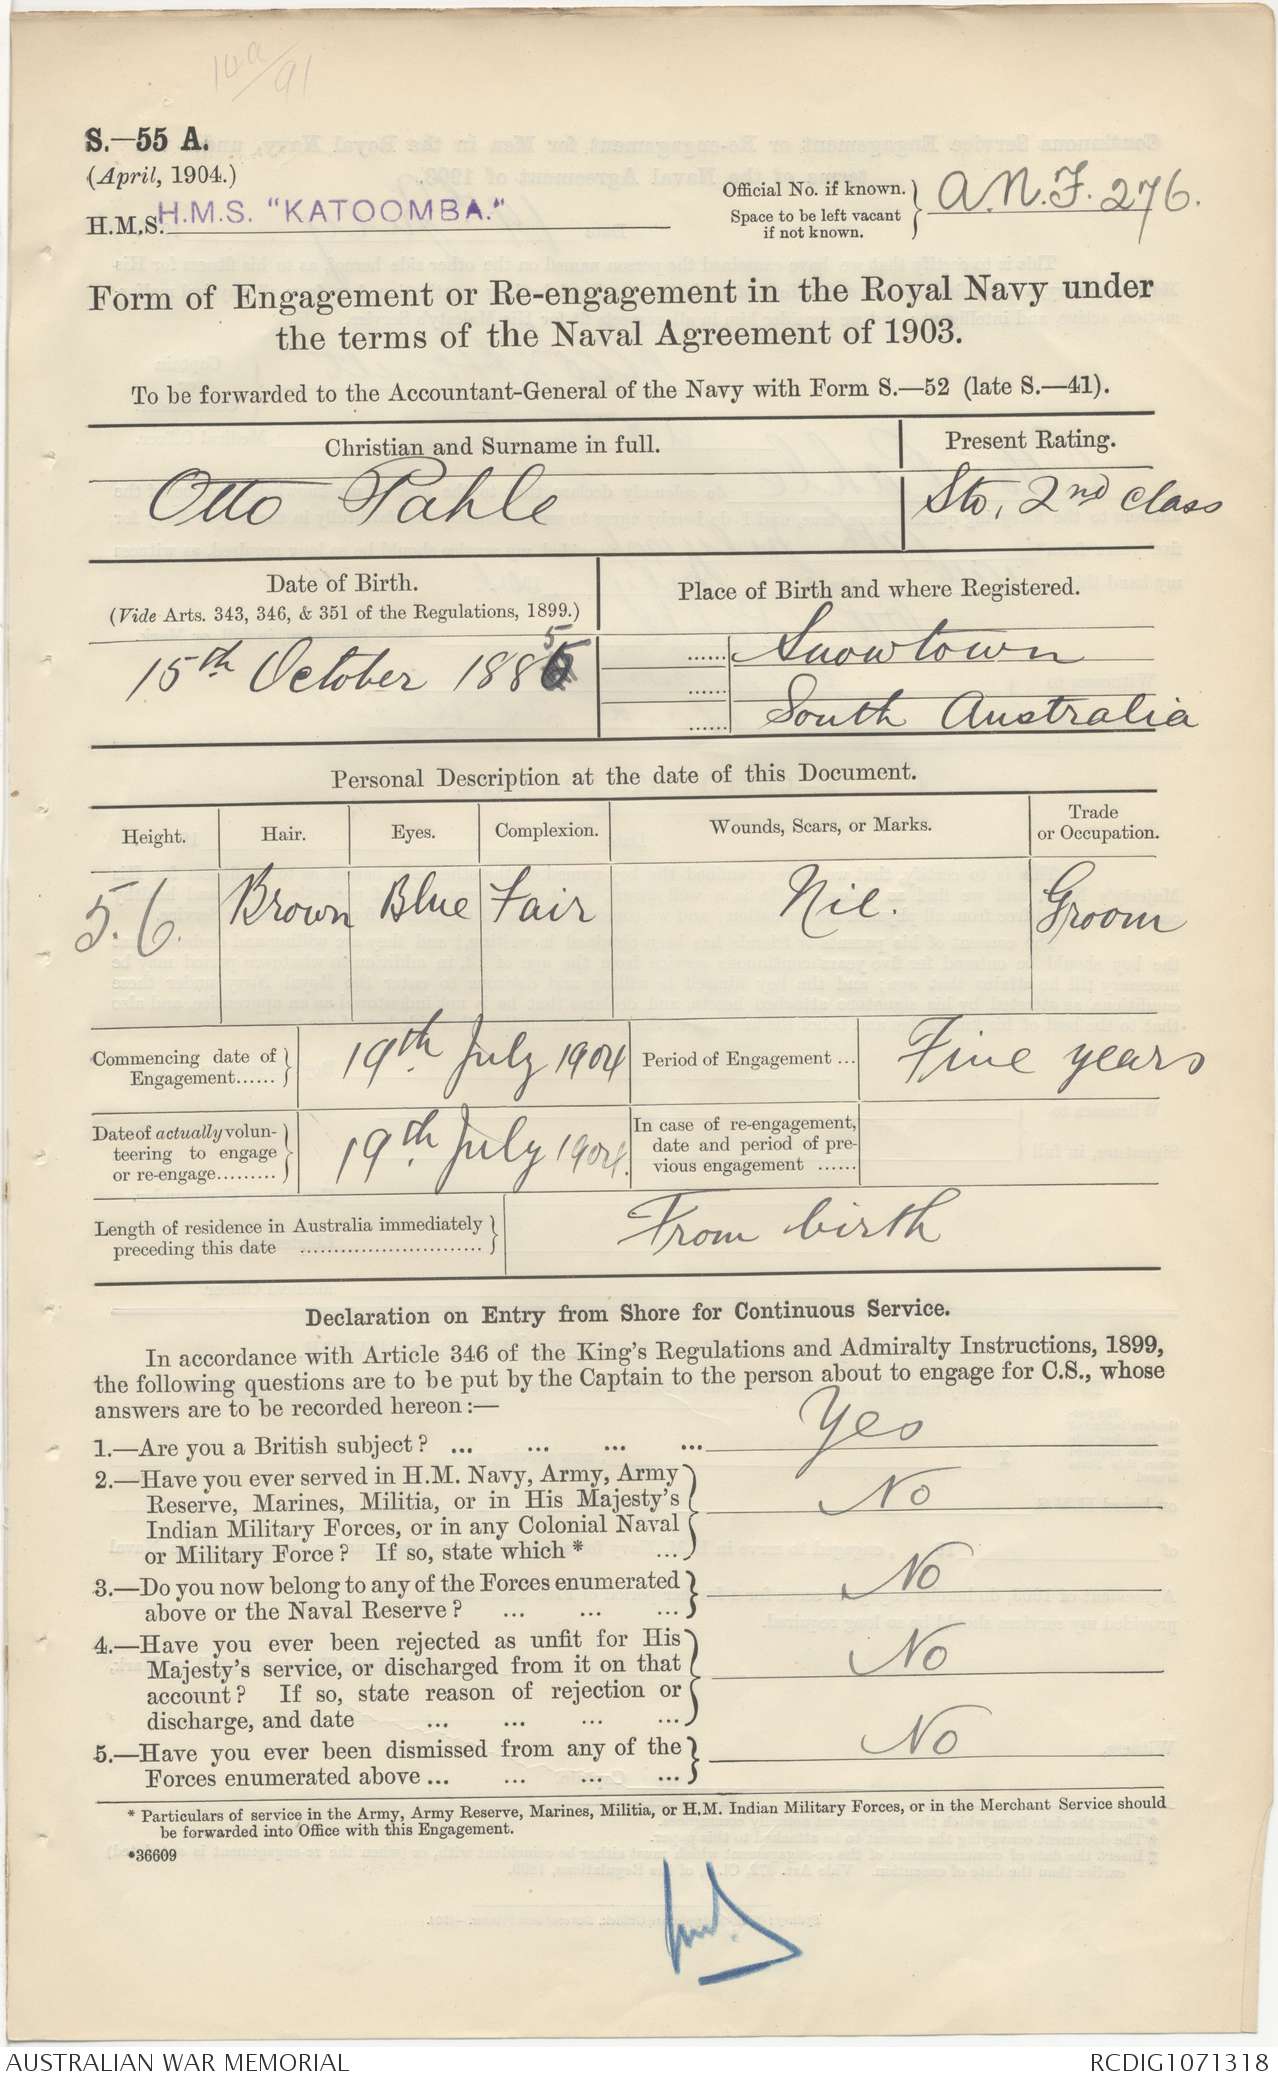 10a/91
S.—55 A.
(April, 1904.)
H.M.S. H.M.S. "KATOOMBA."
Official No. if known.
Space to be left vacant
if not known.
A.N.F. 276.
Form of Engagement or Re-engagement in the Royal Navy under
the terms of the Naval Agreement of 1903.
To be forwarded to the Accountant-General of the Navy with Form S.—52 (late S.—41).
Christian and Surname in full.
Present Rating.
Otto Pahle
Sto, 2nd class
Date of Birth.
(Vide Arts. 343, 346, & 351 of the Regulations, 1899.)
Place of Birth and where Registered.
15th October 1885
...... Snowtown
......
...... South Australia
Personal Description at the date of this Document.
Height. Hair. Eyes. Complexion. Wounds, Scars, or Marks. Trade
or Occupation.
5.6. Brown Blue Fair Nil. Groom
Commencing date of
Engagement......
19th July 1904
Period of Engagement ...
Five years
Date of actually volun-
teering to engage
or re-engage.........
19th July 1904.
In case of re-engagement,
date and period of pre-
vious engagement ......
Length of residence in Australia immediately
preceding this date ...........................
From birth
Declaration on Entry from Shore for Continuous Service.
In accordance with Article 346 of the King's Regulations and Admiralty Instructions, 1899,
the following questions are to be put by the Captain to the person about to engage for C.S., whose
answers are to be recorded hereon:—
1.—Are you a British subject? ... ... ... ... Yes
2.—Have you ever served in H.M. Navy, Army, Army
Reserve, Marines, Militia, or in His Majesty's
Indian Military Forces, or in any Colonial Naval
or Military Force? If so, state which * ...
No
3.—Do you now belong to any of the Forces enumerated
above or the Naval Reserve? ... ... ...
No
4.—Have you ever been rejected as unfit for His
Majesty's service, or discharged from it on that
account? If so, state reason of rejection or
discharge, and date ... ... ... ...
No
5.—Have you ever been dismissed from any of the
Forces enumerated above... ... ... ...
No
* Particulars of service in the Army, Army Reserve, Marines, Militia, or H.M. Indian Military Forces, or in the Merchant Service should
be forwarded into Office with this Engagement.
*36609
AUSTRALIAN WAR MEMORIAL
RCDIG1071318